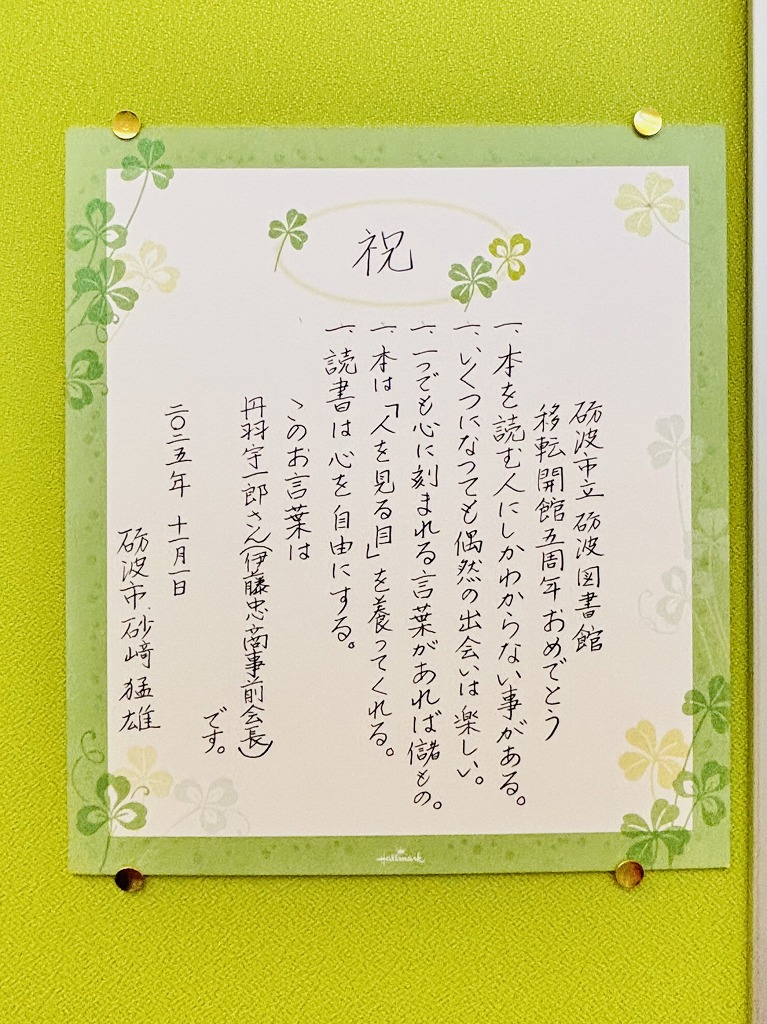 祝
砺波市立 砺波図書館
移転開館五周年おめでとう
一、本を読む人にしかわからない事がある。
一、いくつになっても偶然の出会いは楽しい。
一、一つでも心に刻まれる言葉があれば儲もの。
一、本は「人を見る目」を養ってくれる。
一、読書は心を自由にする。
このお言葉は
丹羽宇一郎さん(伊藤忠商事前会長)
です。
二〇二五年 十一月一日
砺波市 砂﨑 猛雄
Hallmark